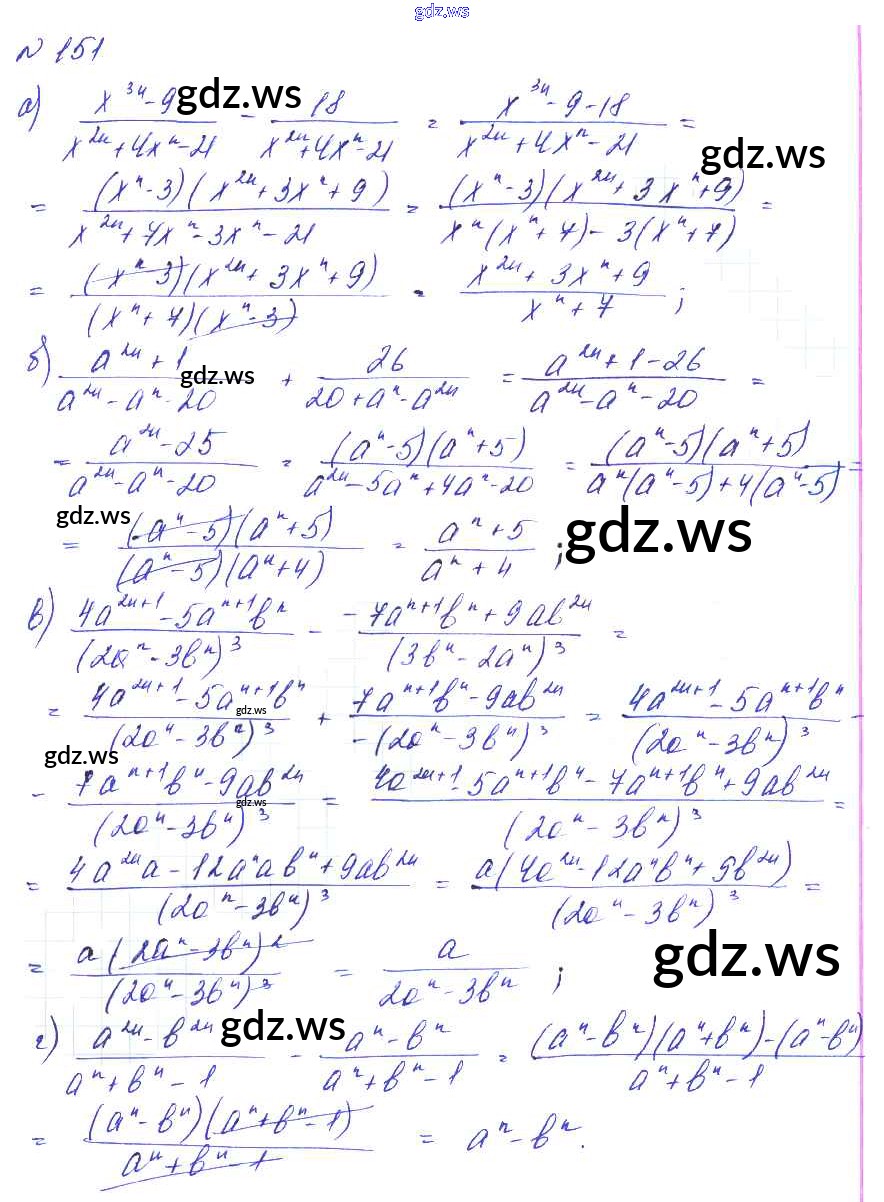 gdz.ws
№ 151
а) (x^3n - 9)/(x^2n + 4x^n - 21) - 18/(x^2n + 4x^n - 21) = (x^3n - 9 - 18)/(x^2n + 4x^n - 21) =
gdz.ws
gdz.ws
= (x^n - 3)(x^2n + 3x^n + 9)/(x^2n + 7x^n - 3x^n - 21) = (x^n - 3)(x^2n + 3x^n + 9)/(x^n(x^n + 7) - 3(x^n + 7)) =
= (x^n - 3)(x^2n + 3x^n + 9)/((x^n + 7)(x^n - 3)) = (x^2n + 3x^n + 9)/(x^n + 7);
б) (a^2n + 1)/(a^2n - a^n - 20) + 26/(20 + a^n - a^2n) = (a^2n + 1 - 26)/(a^2n - a^n - 20) =
gdz.ws
= (a^2n - 25)/(a^2n - a^n - 20) = (a^n - 5)(a^n + 5)/(a^2n - 5a^n + 4a^n - 20) = (a^n - 5)(a^n + 5)/(a^n(a^n - 5) + 4(a^n - 5)) =
gdz.ws
gdz.ws
= (a^n - 5)(a^n + 5)/((a^n - 5)(a^n + 4)) = (a^n + 5)/(a^n + 4);
в) (4a^2n+1 - 5a^n+1 b^n)/(2a^n - 3b^n)^3 - (-7a^n+1 b^n + 9ab^2n)/(3b^n - 2a^n)^3 =
= (4a^2n+1 - 5a^n+1 b^n)/(2a^n - 3b^n)^3 + (7a^n+1 b^n - 9ab^2n)/(-(2a^n - 3b^n)^3) = (4a^2n+1 - 5a^n+1 b^n)/(2a^n - 3b^n)^3 -
gdz.ws
gdz.ws
- (7a^n+1 b^n - 9ab^2n)/(2a^n - 3b^n)^3 = (4a^2n+1 - 5a^n+1 b^n - 7a^n+1 b^n + 9ab^2n)/(2a^n - 3b^n)^3 =
gdz.ws
= (4a^2n a - 12a^n ab^n + 9ab^2n)/(2a^n - 3b^n)^3 = a(4a^2n - 12a^n b^n + 9b^2n)/(2a^n - 3b^n)^3 =
= a(2a^n - 3b^n)^2/(2a^n - 3b^n)^3 = a/(2a^n - 3b^n);
gdz.ws
г) (a^2n - b^2n)/(a^n + b^n - 1) - (a^n - b^n)/(a^n + b^n - 1) = ((a^n - b^n)(a^n + b^n) - (a^n - b^n))/(a^n + b^n - 1)
gdz.ws
= (a^n - b^n)(a^n + b^n - 1)/(a^n + b^n - 1) = a^n - b^n.